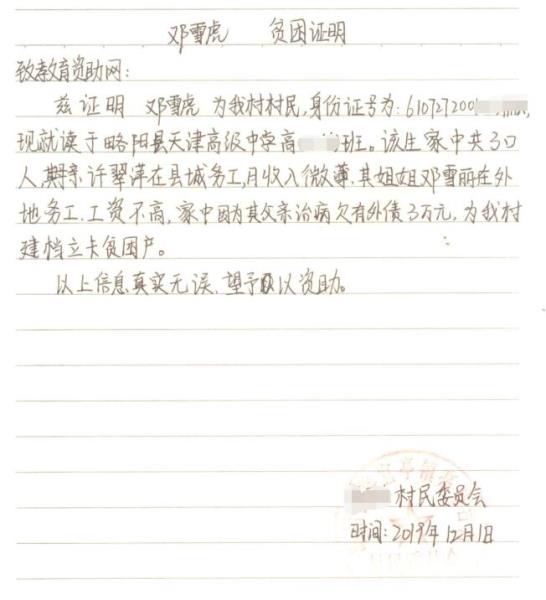 邓雪虎 贫困证明
致教育资助网:
兹证明 邓雪虎 为我村村民,身份证号为:610727200
现就读于略阳县天津高级中学高 班。该生家中共3口
人,其母亲许翠萍在县城务工,月收入微薄,其姐姐邓雪丽在外
地务工,工资不高,家中因为其父亲治病欠有外债3万元,为我村
建档立卡贫困户。
以上信息真实无误,望予以资助。
村民委员会
时间:2019年12月1日